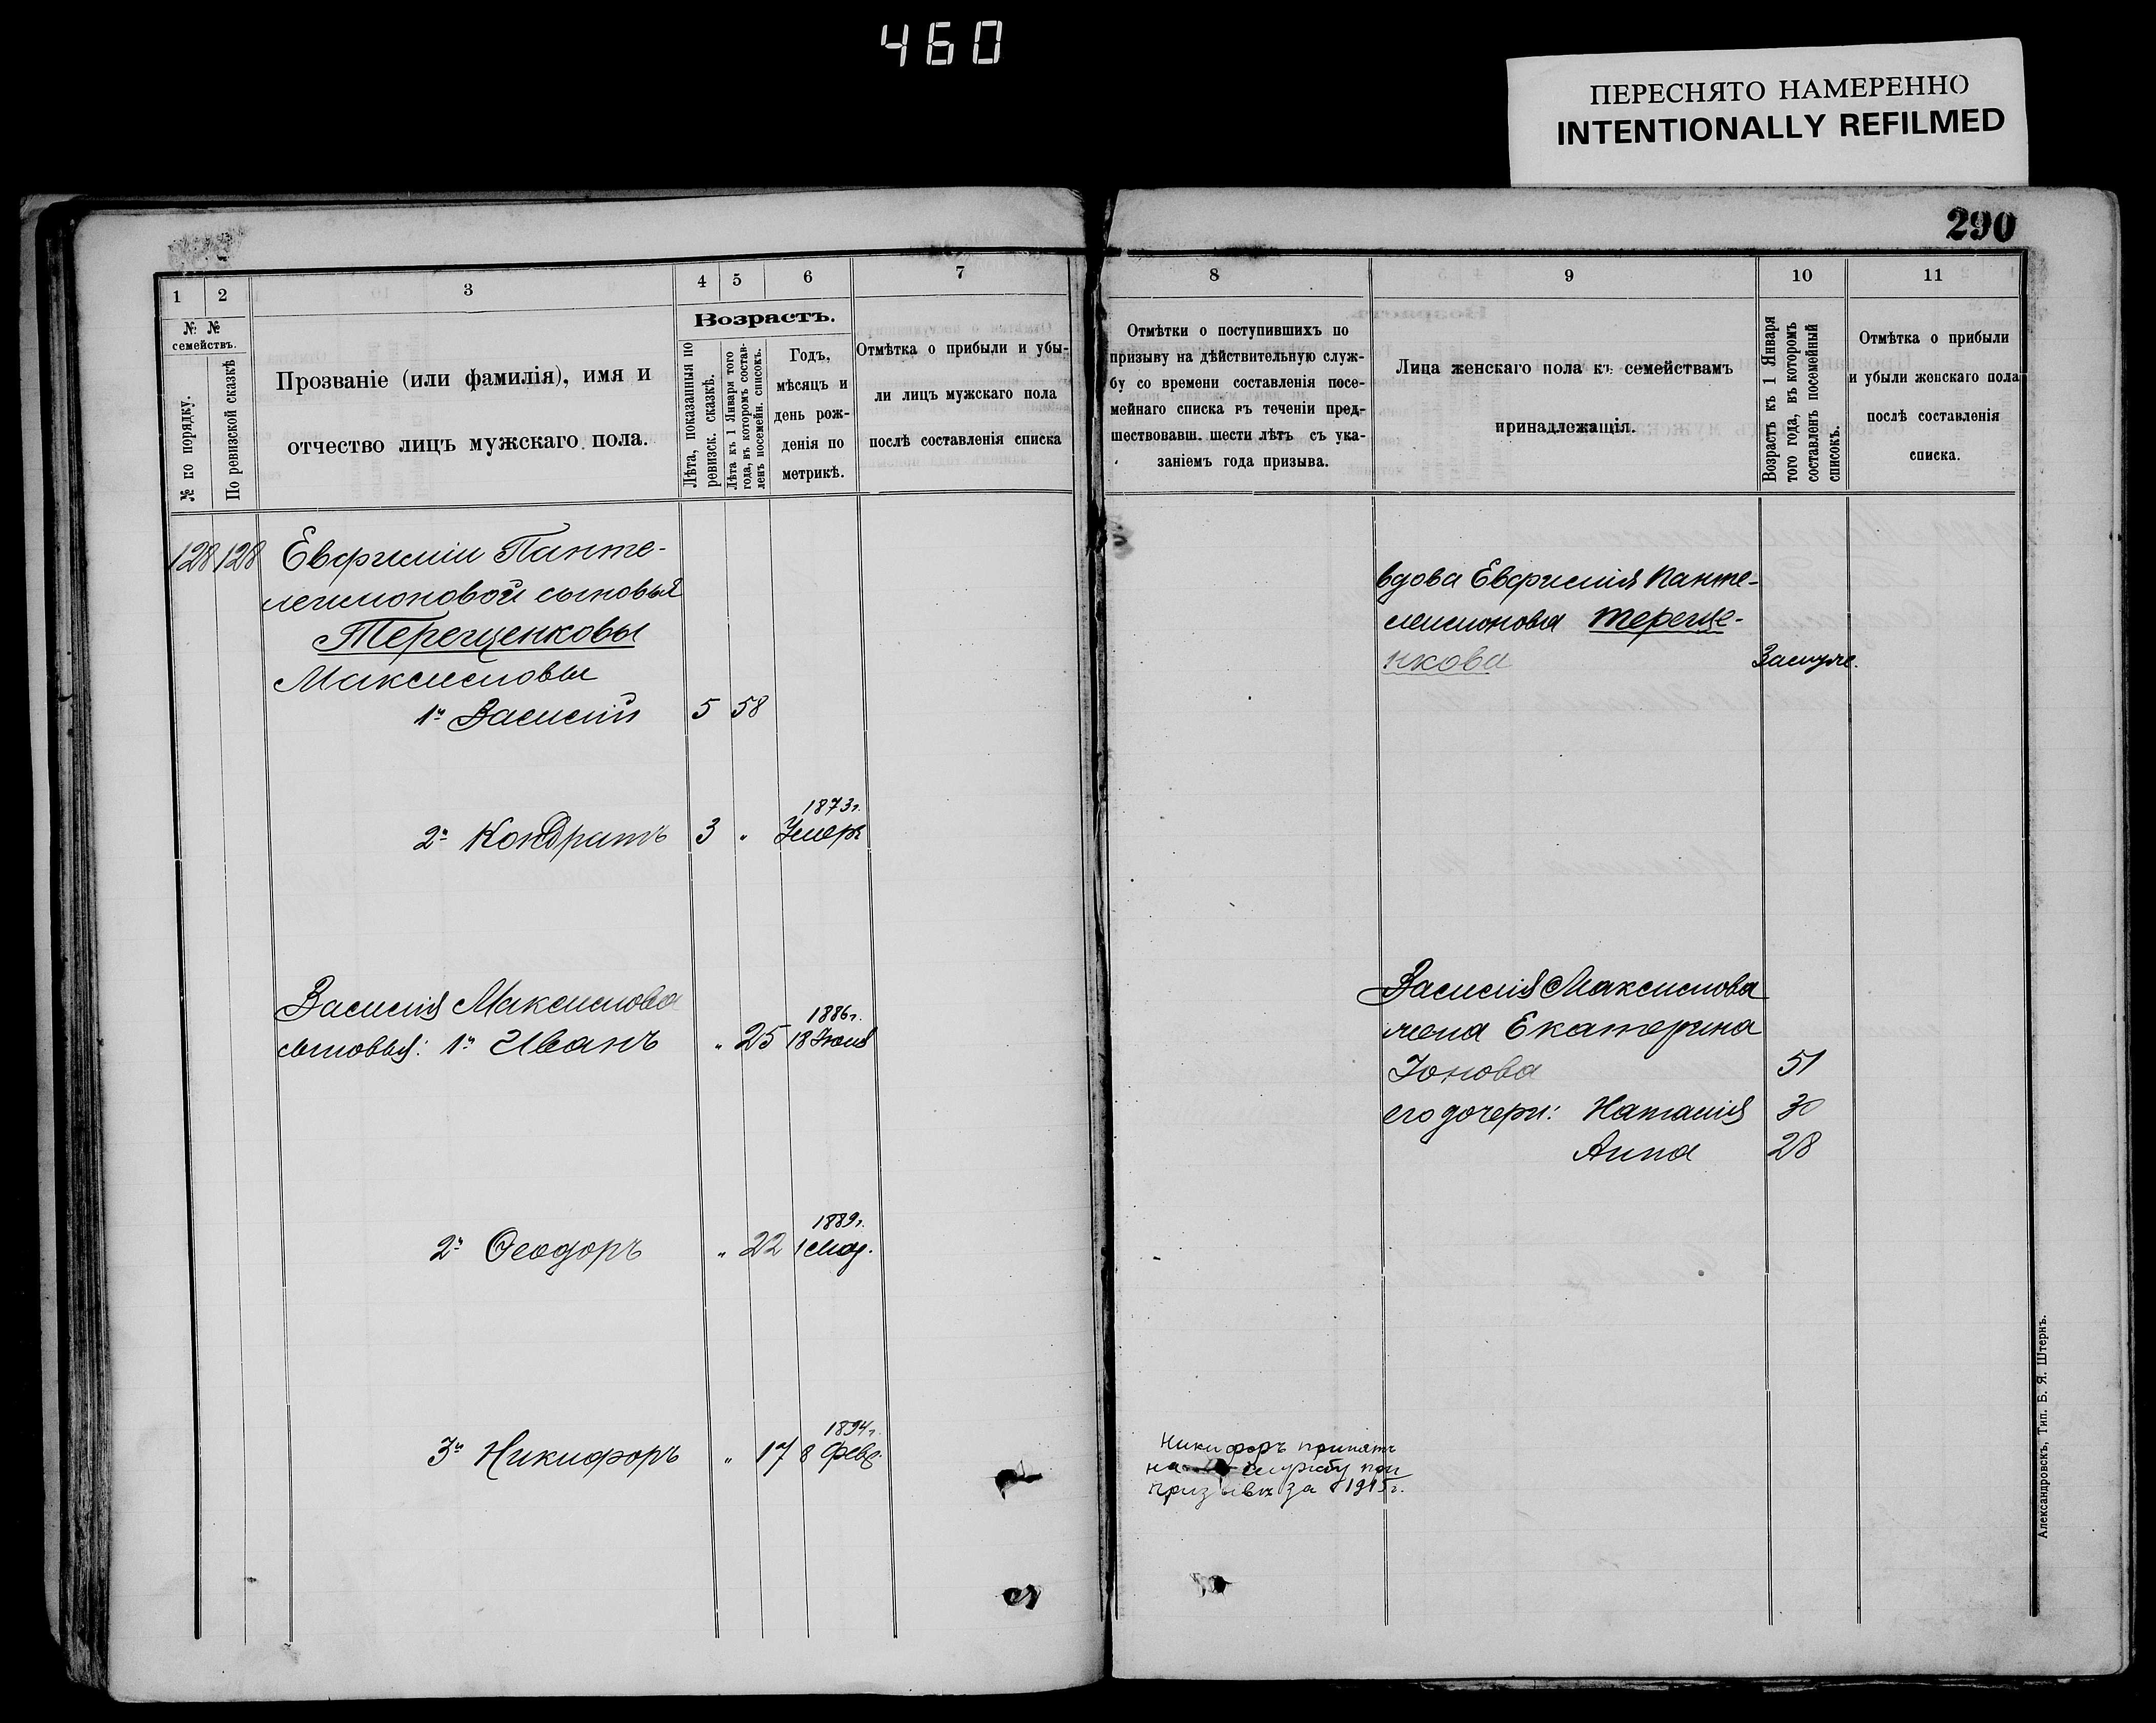 460
ПЕРЕСНЯТО НАМЕРЕННО
INTENTIONALLY REFILMED
290
1
2
3
4
5
6
7
№ №
семействъ.
№ по порядку.
По ревизской сказкѣ
Прозваніе (или фамилія), имя и
отчество лицъ мужскаго пола.
Возрастъ.
Лѣта, показанныя по
ревизск. сказкѣ.
Лѣта къ 1 Января того
года, въ которомъ состав-
ленъ посемейн. списокъ.
Годъ,
мѣсяцъ и
день рож-
денія по
метрикѣ.
Отмѣтка о прибыли и убы-
ли лицъ мужскаго пола
послѣ составленія списка
128 128 Евфиміи Панте-
леимоновой сыновья
Терещенковы
Максимовы
1й Василий 5 58
1873г.
2й Кондратъ 3 " Умеръ
Василія Максимова
1886г.
сыновья: 1й Иванъ " 25 18 Іюня
1889г.
2й Ѳеодоръ " 22 1 Мая.
1894г.
3й Никифоръ " 17 8 Февр.
8
9
10
11
Отмѣтки о поступившихъ по
призыву на дѣйствительную служ-
бу со времени составленія посе-
мейнаго списка въ теченіи пред-
шествовавш. шести лѣтъ съ ука-
заніемъ года призыва.
Лица женскаго пола къ семействамъ
принадлежащія.
Возрастъ къ 1 Января
того года, въ которомъ
составленъ посемейный
списокъ.
Отмѣтка о прибыли
и убыли женскаго пола
послѣ составленія
списка.
вдова Евфимія Панте-
леимонова Тереще-
нкова Замуже.
Василія Максимова
жена Екатерина
Іонова 51
его дочери: Наталія 30
Анна 28
Никифоръ принятъ
на службу при
призывѣ за 1915г.
Александровскъ, Тип. Б. Я. Штернъ.